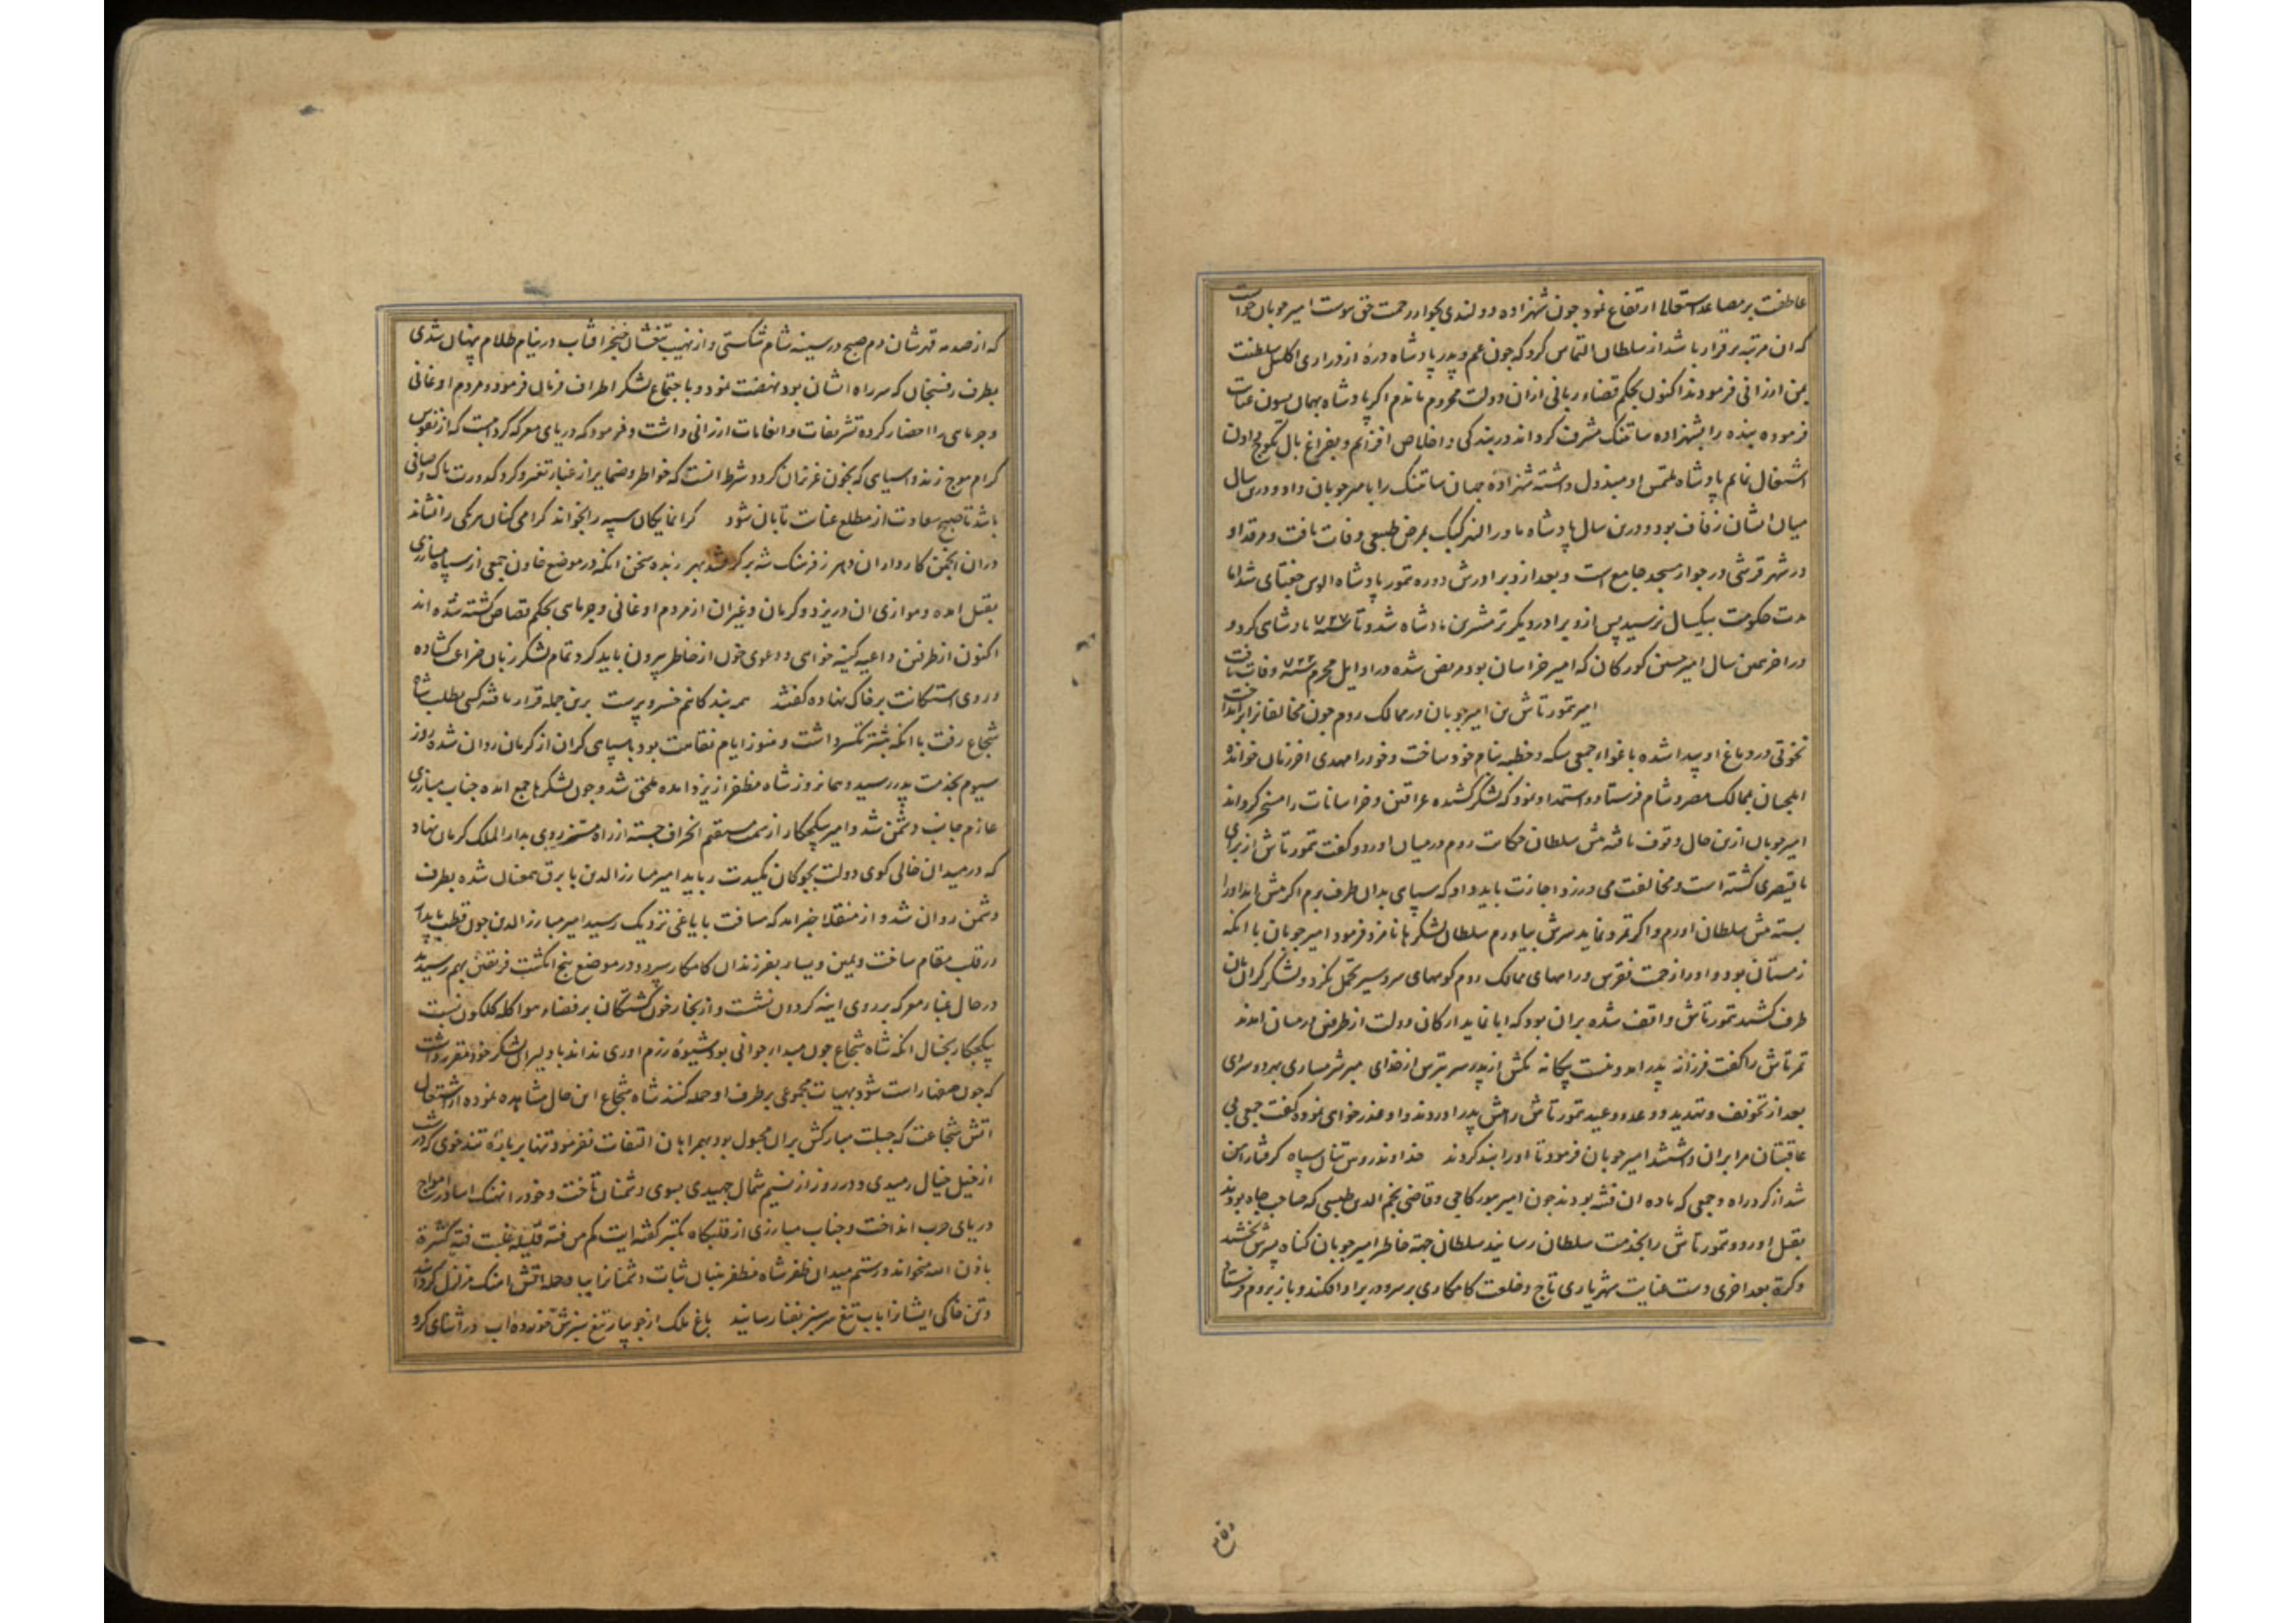 عاطفت بر مصاعد استعلا ارتفاع نمود چون شهزاده دولندی بجوار رحمت حق پیوست امیر چوبان خواست
که ان مرتبه برقرار باشد از سلطان التماس کرد که چون عم و پدر پادشاه دره از دراری اکلیل سلطنت
بمن ارزانی فرمودند اکنون بحکم قضاء ربانی ازان دولت محروم ماندم اکر پادشاه بهمان سون عنایت
فرموده بنده را بشهزاده ساتنک مشرف کرداند در بندکی و اخلاص افزایم و بفراغ بال
اشتغال نمایم پادشاه ملتمس او مبذول داشته شهزاده جهان ساتنک را بامیر چوبان داد و درین سال
میان ایشان زفاف بود و درین سال پادشاه ماورالنهر کبک بمرض طبیعی وفات یافت و مرقد او
در شهر قرشی در جوار مسجد جامع است و بعد از و برادرش دوره تمور پادشاه الوس جغتای شد اما
مدت حکومت بیکسال نرسید پس ازو برادر دیکر ترمشرین پادشاه شد و تا سنه ۷۲۷ پادشاهی کرد و
در اخر همین سال امیر حسین کورکان که امیر خراسان بود مریض شده در اوایل محرم سنه ۷۲۲ وفات یافت
امیر تمورتاش بن امیر چوبان در ممالک روم چون مخالفانرا برانداخت
نخوتی در دماغ او پیدا شده باغواء جمعی سکه و خطبه بنام خود ساخت و خود را مهدی اخر زمان خوانده
ایلچیان بممالک مصر و شام فرستاد و استمداد نمود که لشکر کشیده عراقین و خراسانات را مسخر کرداند
امیر چوبان ازین حال وقوف یافته پیش سلطان حکایت روم در میان اورد و کفت تمورتاش از برای
یا قیصری کشته است و مخالفت می ورزد اجازت باید داد که سپاهی بدان طرف برم اکر پیش اید اورا
بسته پیش سلطان اورم و اکر تمرد نماید سرش بیاورم سلطان لشکرها نامزد فرمود امیر چوبان با انکه
زمستان بود و اورا زحمت نقرس و راههای ممالک روم کوههای سردسیر تحمل نکرد و لشکر کران بان
طرف کشید تمورتاش واقف شده بران بود که ابا نماید ارکان دولت از طرفین در میان امدند
تمرتاش را کفت فرزانه پدر امد و نیست بیکانه مکش از پدر سر بترس از خدای مبر شرمساری بهر دو سرای
بعد از تخویف و تهدید و وعد و وعید تمورتاش را پیش پدر اوردند و او عذرخواهی نمود و کفت جمعی بی
عاقبتان مرا بران داشتند امیر چوبان فرمود تا اورا بند کردند خداوند روس تنان سپاه کرفتار این
شد از کرد راه و جمعی که ماده ان فتنه بودند چون امیر بیورکاجی و قاضی نجم الدین طبسی که صاحب جاه بودند
بقتل اورد و تمورتاش را بخدمت سلطان رسانید سلطان جهة خاطر امیر چوبان کناه پسرش بخشید
و کرة بعد اخری دست عنایت شهریاری تاج و خلعت کامکاری بر سر و در بر او افکند و باز بروم فرستاد
که از صدمه قهرشان دم صبح در سینه شام شکستی و از نهیب تیغشان خنجر افتاب در نیام ظلام پنهان شدی
بطرف رفسنجان که سر راه ایشان بود نهضت نمود و باجتماع لشکر اطراف فرمان فرمود و مردم اوغانی
و جرمایی را احضار کرده تشریفات و انعامات ارزانی داشت و فرمود که دریای معرکه کردابیست که از نفوس
کرام موج زند و اسیای که بخون عزیزان کردد شرط انست که خواطر و ضمایر از غبار تغیر و کرد کدورت پاک و صافی
باشد تا صبح سعادت از مطلع عنایت تابان شود کرانمایکان سپه را بخواند کرامی کنان هر یکی را نشاند
دران انجمن کارداران دهر ز فرهنک شه برکرفتند بهر زبده سخن انکه در موضع خاون جمعی از سپاه مبارزی
بقتل امده و موازی ان در یزد و کرمان و غیران از مردم اوغانی و جرمایی بحکم قصاص کشته شده اند
اکنون از طرفین داعیه کینه خواهی و دعوی خون از خاطر بیرون باید کرد تمام لشکر زبان ضراعت کشاده
و روی استکانت بر خاک نهاده کفتند همه بندکانیم خسرو پرست برین جمله قرار یافته کسی بطلب شاه
شجاع رفت با انکه بیشتر تکسر داشت و هنوز ایام نقاهت بود با سپاهی کران از کرمان روان شده روز
سیوم بخدمت پدر رسید و همان روز شاه مظفر از یزد امده ملحق شد و چون لشکرها جمع امده جناب مبارزی
عازم جانب دشمن شد و امیر بیکجکار از سمت مستقیم انحراف جسته از راه مشخر روی بدارالملک کرمان نهاد
که در میدان خالی کوی دولت بچوکان مکیدت رباید امیر مبارزالدین با برق همعنان شده بطرف
دشمن روان شد و از منقلا خبر امد که مسافت با یاغی نزدیک رسید امیر مبارزالدین چون قطب پایدار
در قلب مقام ساخت و یمین و یسار بفرزندان کامکار سپرد و در موضع پنج انکشت فریقین بهم رسیدند
در حال غبار معرکه بر روی اینه کردون نشست و از بخار خون کشتکان بر فضاء هوا کله کلکون بست
بیکجکار بخیال انکه شاه شجاع چون مبدا جوانی بود شیوه رزم اوری نداند با دلیران لشکر خود مقرر داشت
که چون صف ها راست شود بهیات مجموعی بر طرف او حمله کنند شاه شجاع این حال مشاهده نموده از اشتعال
اتش شجاعت که جبلت مبارکش بران مجبول بود بهمراهان التفات نفرمود و تنها بر باره تند خوی که در شب
از خیل خیال رمیدی و در روز از نسیم شمال جهیدی بسوی دشمنان تاخت و خود را نهنک اسا در امواج
دریای حرب انداخت و جناب مبارزی از قلبکاه تکبیر کفته ایت کم من فئه قلیله غلبت فئه کثیرة
باذن الله میخواند و رستم میدان ظفر شاه مظفر بنیان ثبات دشمنانرا بیاد حمله اتش اهنک متزلزل کرداند
و تن خاکی ایشانرا باب تیغ سرسبز بفنا رسانید باغ ملک از جویبار تیغ سبزش خورده اب در اثنای کرو